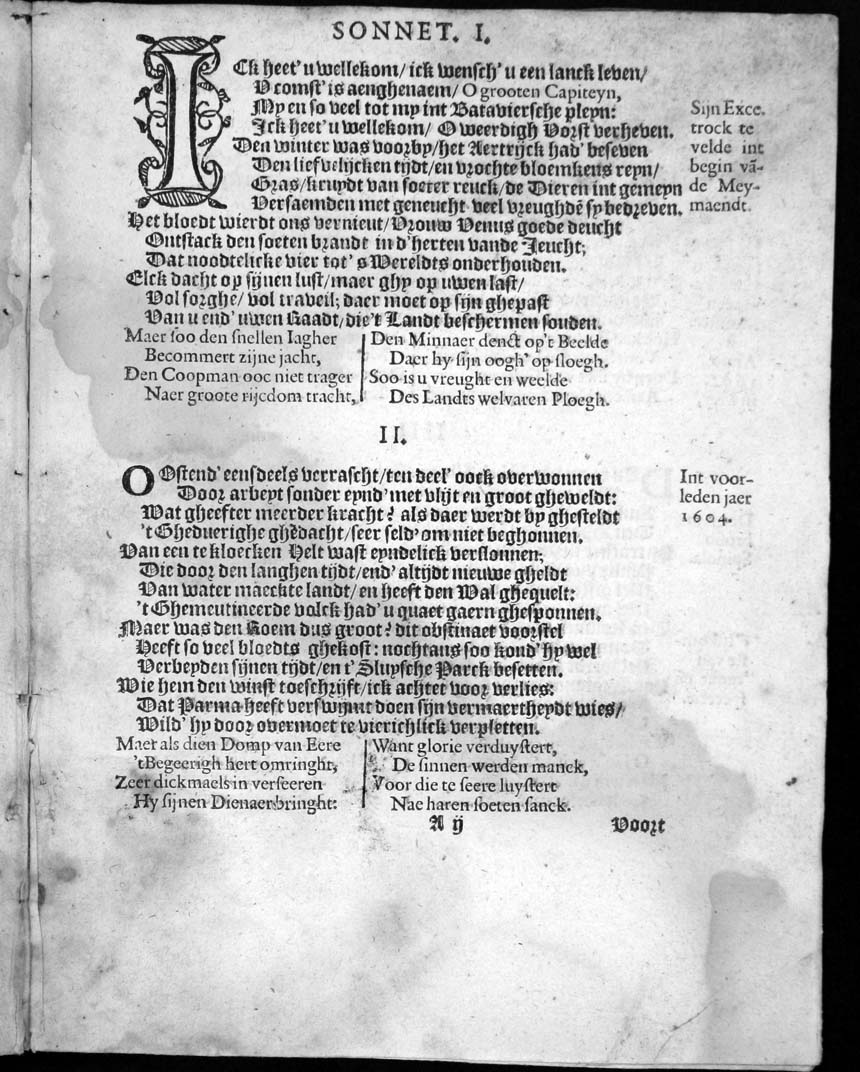 SONNET. I.
ICk heet' u wellekom/ ick wensch' u een lanck leven/
V comst' is aenghenaem/ O grooten Capiteyn,
My en so veel tot my int Bataviersche pleyn:
Ick heet' u wellekom/ O weerdigh Vorst verheven.
Den winter was voorby/ het Aertrijck had' beseven
Den liefvelijcken tijdt/ en vrochte bloemkens reyn/
Gras/ kruydt van soeter reuck/ de Dieren int gemeyn
Versaemden met geneucht veel vreughdē sy bedreven.
Sijn Exce.
trock te
velde int
begin vā-
de Mey-
maendt.
Het bloedt wierdt ons vernieut/ Vrouw Venus goede deucht
Ontstack den soeten brandt in d'herten vande Jeucht;
Dat noodtelicke vier tot' s Wereldts onderhouden.
Elck dacht op sijnen lust/ maer ghy op uwen last/
Vol sorghe/ vol traveil; daer moet op sijn ghepast
Van u end' uwen Raadt/ die't Landt beschermen souden.
Maer soo den snellen Iagher
Becommert zijne jacht,
Den Coopman ooc niet trager
Naer groote rijcdom tracht,
Den Minnaer denct op't Beelde
Daer hy sijn oogh' op sloegh.
Soo is u vreught en weelde
Des Landts welvaren Ploegh.
II.
OOstend' eensdeels verrascht/ ten deel' oock overwonnen
Door arbeyt sonder eynd' met vlijt en groot gheweldt:
Wat gheefter meerder kracht? als daer werdt by ghesteldt
't Gheduerighe ghēdacht/ seer seld' om niet beghonnen.
Int voor-
leden jaer
1604.
Van een te kloecken Helt wast eyndelick verslonnen;
Die door den langhen tijdt/ end' altijdt nieuwe gheldt
Van water maeckte landt/ en heeft den Wal ghequelt:
't Ghemeutineerde volck had' u quaet gaern ghesponnen.
Maer was den Roem dus groot? dit obstinaet voorstel
Heeft so veel bloedts ghekost: nochtans soo kond' hy wel
Verbeyden sijnen tijdt/ en t' Sluysche Parck besetten.
Wie hem den winst toeschrijft/ ick achtet voor verlies:
Dat Parma heeft verswijmt doen sijn vermaertheydt wies/
Wild' hy door overmoet te vierichlick verpletten.
Maer als dien Domp van Eere
'tBegeerigh hert omringht,
Zeer dickmaels in verseeren
Hy sijnen Dienaer bringht:
Want glorie verduystert,
De sinnen werden manck,
Voor die te seere luystert
Nae haren soeten sanck.
A ij
Voort